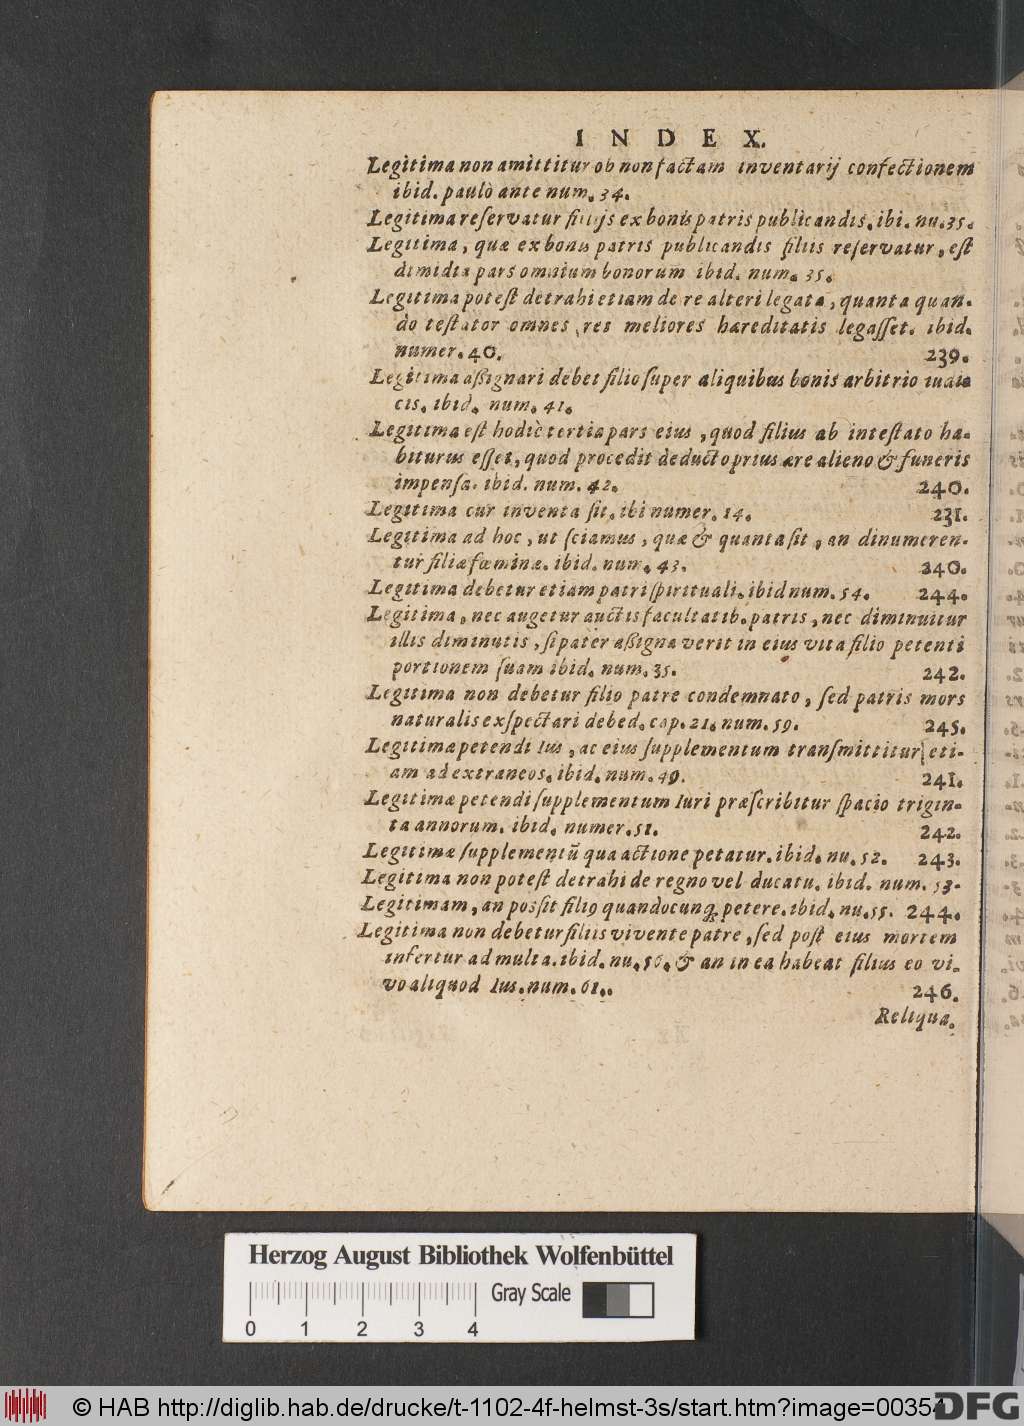 INDEX.
Legitima non amittitur ob non factam inventarij confectionem
ibid. paulò ante num. 34.
Legitima reſervatur filijs ex bonis patris publicandis. ibi. nu. 35.
Legitima, quæ ex bonis patris publicandis filiis reſervatur, eſt
dimidia pars omnium bonorum ibid. num. 35.
Legitima poteſt detrahi etiam de re alteri legata, quanta quan-
do teſtator omnes res meliores hæreditatis legaſſet. ibid.
numer. 40. 239.
Legitima aßignari debet filio ſuper aliquibus bonis arbitrio iudi
cis. ibid. num. 41.
Legitima eſt hodiè tertia pars eius, quod filius ab inteſtato ha-
biturus eſſet, quod procedit deducto prius ære alieno & funeris
impenſa. ibid. num. 42. 240.
Legitima cur inventa ſit. ibi numer. 14. 231.
Legitima ad hoc, ut ſciamus, quæ & quanta ſit, an dinumeren-
tur filiæ fœminæ. ibid. num. 43. 240.
Legitima debetur etiam patri ſpirituali. ibid num. 54. 244.
Legitima, nec augetur auctis facultatib. patris, nec diminuitur
illis diminutis, ſi pater aßignaverit in eius vita filio petenti
portionem ſuam ibid. num. 35. 242.
Legitima non debetur filio patre condemnato, ſed patris mors
naturalis exſpectari debed. cap. 21. num. 59. 245.
Legitimæ petendi Ius, ac eius ſupplementum tranſmittitur eti-
am ad extraneos. ibid. num. 49. 241.
Legitimæ petendi ſupplementum Iuri præſcribitur ſpacio trigin-
ta annorum. ibid. numer. 51. 242.
Legitimæ ſupplementũ qua actione petatur. ibid. nu. 52. 243.
Legitima non poteſt detrahi de regno vel ducatu. ibid. num. 53.
Legitimam, an poſsit filiꝰ quandocunq; petere. ibid. nu. 55. 244.
Legitima non debetur filiis vivente patre, ſed poſt eius mortem
infertur ad multa. ibid. nu. 56. & an in ea habeat filius eo vi-
vo aliquod Ius. num. 61.. 246.
Reliqua.
Herzog August Bibliothek Wolfenbüttel
Gray Scale
0 1 2 3 4
© HAB http://diglib.hab.de/drucke/t-1102-4f-helmst-3s/start.htm?image=00354
DFG